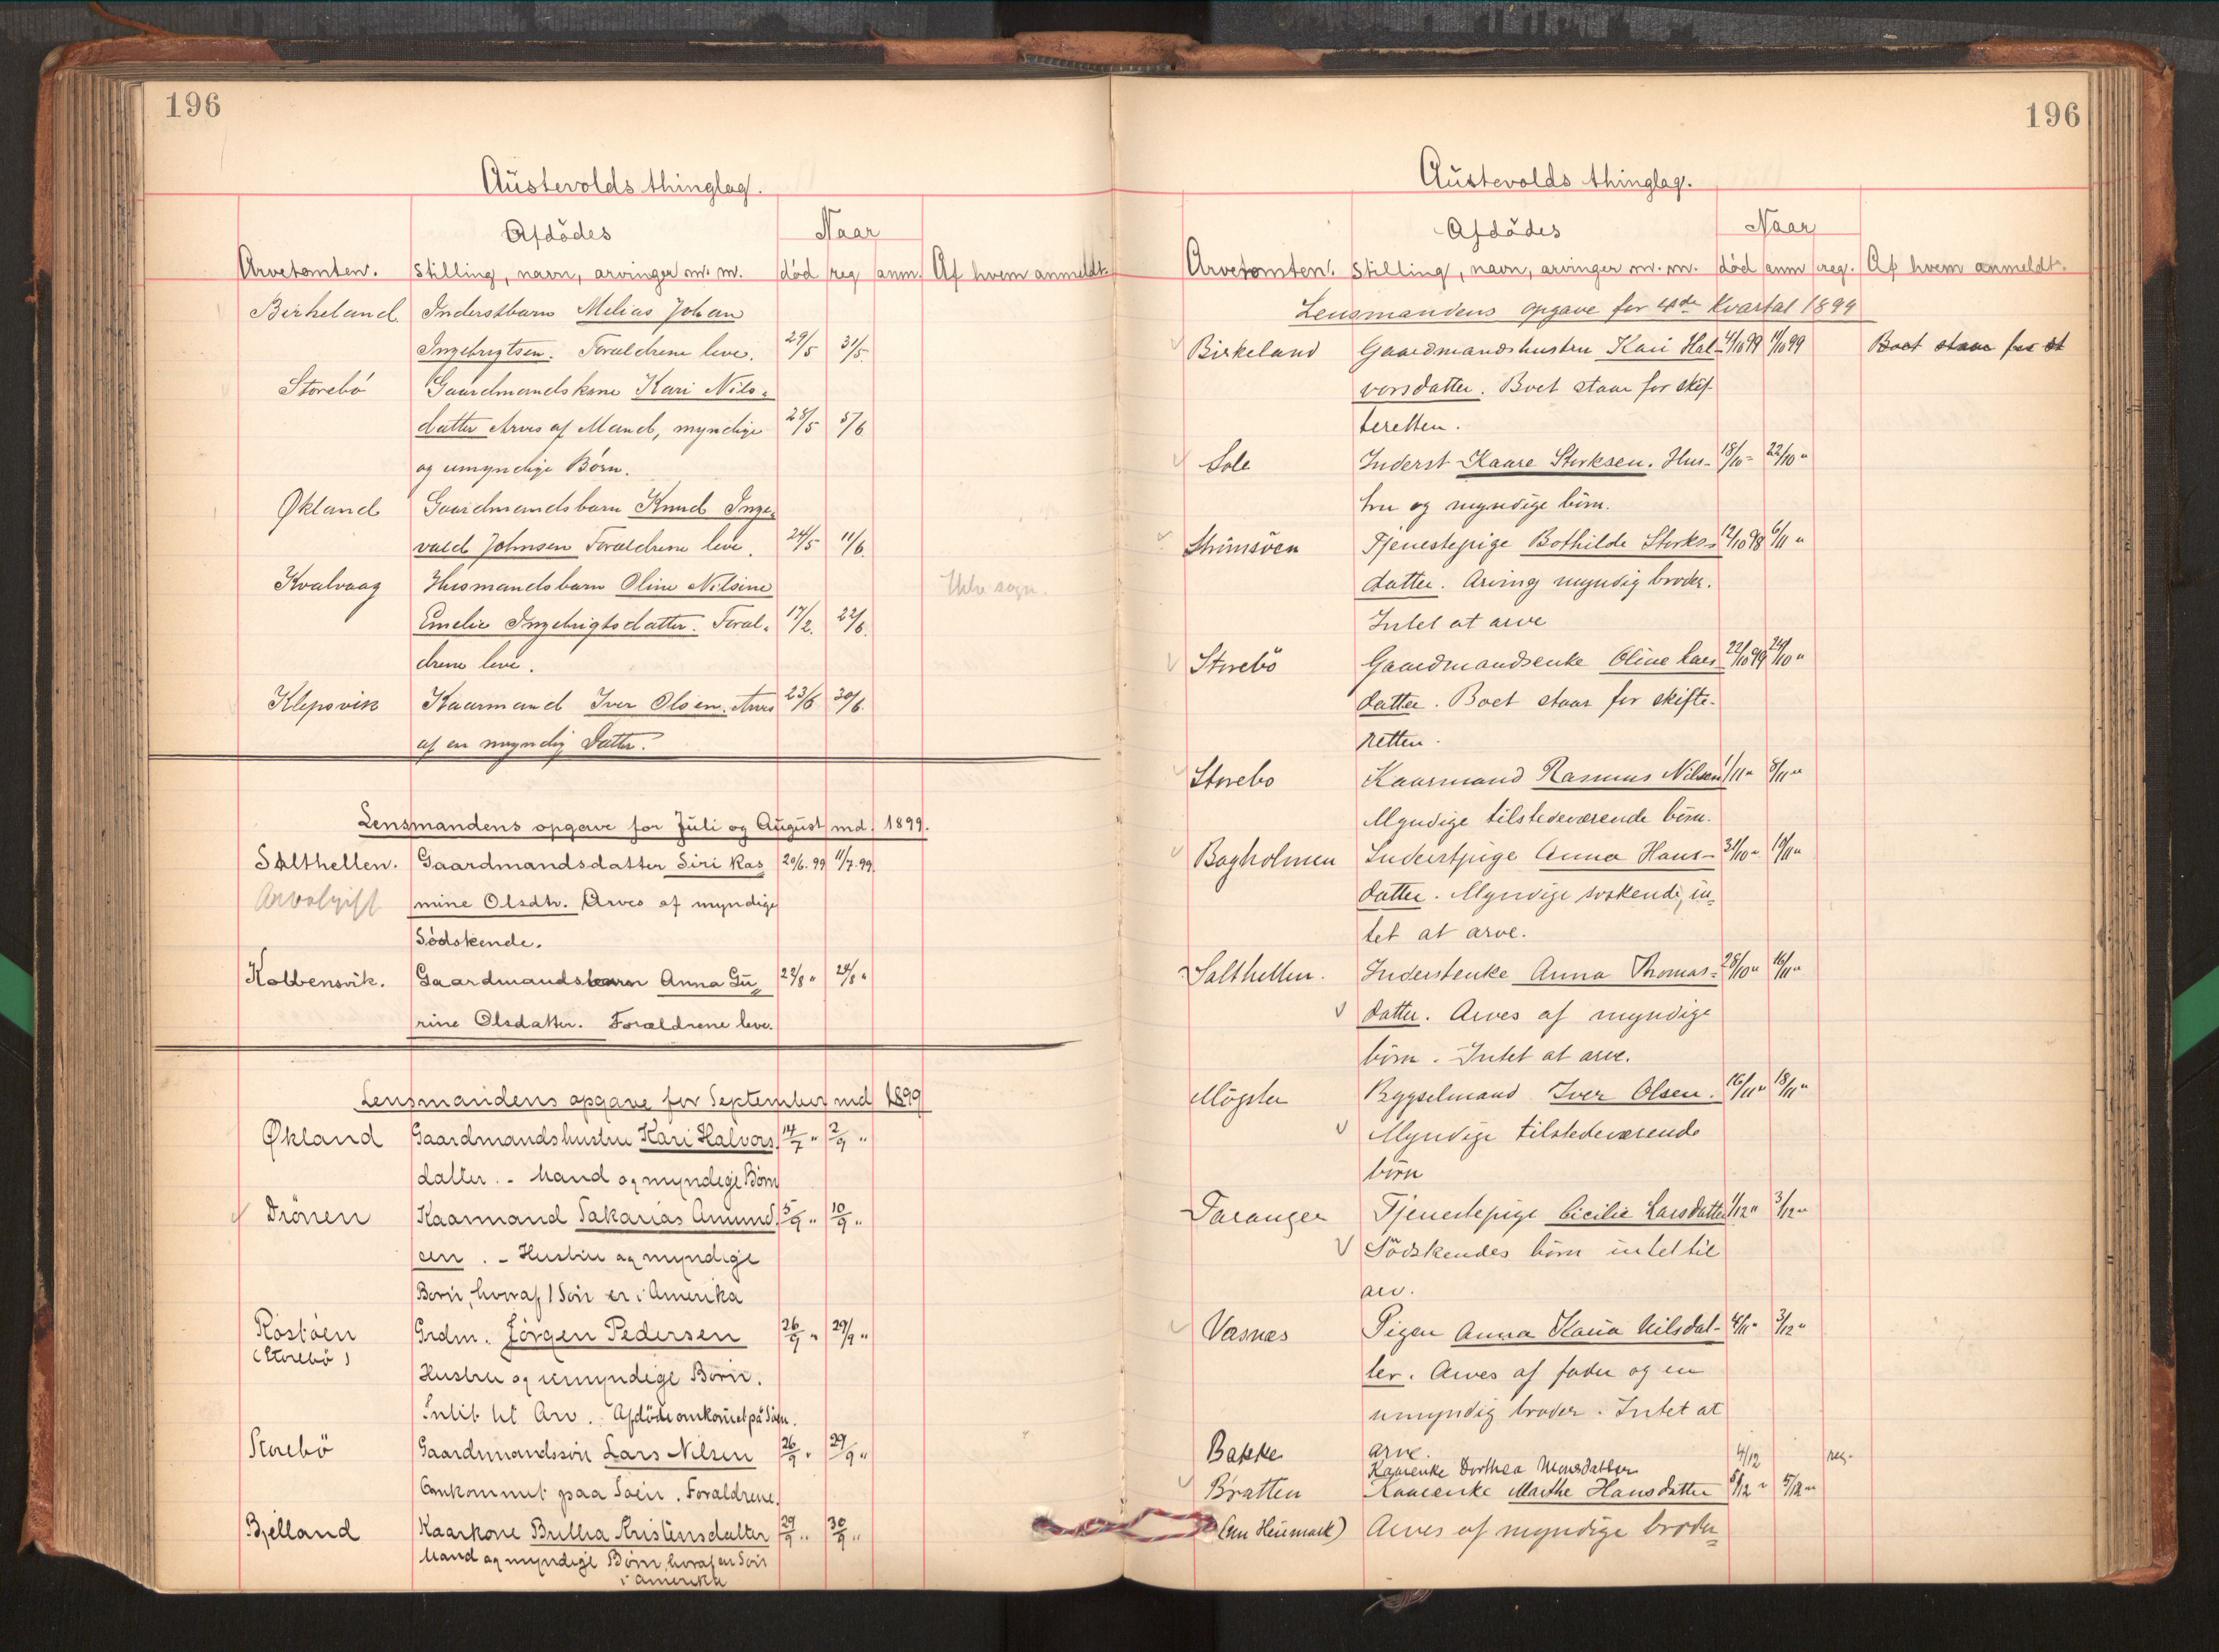 196
Austevolds thinglag.
Afdödes
Naar
Arvetomten. Stilling, navn, arvinger m. m. död reg anm. Af hvem anmeldt.
Birkeland. Inderstbarn Melias Johan
Ingebrigtsen. Forældrene leve. 29/5 31/5
Storebö Gaardmandskone Kari Nils-
datter Arves af Mand, myndige 28/5 5/6
og umyndige Börn.
Økland Gaardmandsbarn Knud Inge-
vald Johnsen Forældrene leve. 24/5 11/6
Kvalvaag Husmandsbarn Oline Nilsine Ikke sogn.
Emelie Ingebrigtsdatter. Foræl- 17/2. 22/6.
drene leve.
Klepsvik Kaarmand Iver Olsen. Arves 23/6 30/6.
af en myndig Datter.
Lensmandens opgave for Juli og August md. 1899.
Salthellen. Gaardmandsdatter Siri Ras 20/6. 99 11/7. 99.
Arveafgift mine Olsdtr. Arves af myndige
Södskende.
Kolbensvik. Gaardmandsbarn Anna Gu„ 22/8 " 24/8 "
rine Olsdatter. Forældrene leve.
Lensmandens opgave for September md 1899
Økland Gaardmandshustru Kari Halvors 14/7 " 2/9 "
datter. - Mand og myndige Börn
Drönen Kaarmand Sakarias Amund. 5/9 " 10/9 "
sen. - Hustru og myndige
Börn, hvoraf 1 Sön er i Amerika
Rostöen Grdm. Jörgen Pedersen 26/9 " 29/9 "
(Storebö)
Hustru og umyndige Börn.
Intet til Arv. Afdöde omkommet på Söen.
Storebö Gaardmandssön Lars Nilsen 26/9 " 29/9 "
Omkommet paa Söen. Forældrene.
Bjelland Kaarkone Britha Kristensdatter 29/9 " 30/9 "
Mand og myndige Börn, hvoraf en Sön
i Amerika
196
Austevolds thinglag.
Afdödes
Naar
Arvetomten. Stilling, navn, arvinger m. m. död anm reg. Af hvem anmeldt.
Lensmandens opgave for 4de Kvartal 1899
Birkeland Gaardmandshustru Kari Hal- 4/10 99 11/10 99 Boet staar for st
vorsdatter. Boet staar for skif-
teretten.
Sole Inderst Kaare Storksen. Hus- 18/10 " 22/10 "
tru og myndige börn.
Strömsöen Tjenestepige Bothilde Storks- 12/10 98 6/11 "
datter. Arving myndig broder.
Intet at arve
Storebö Gaardmandsenke Oline Lars 22/10 99 24/10 "
datter. Boet staar for skifte-
retten.
Storebo Kaarmand Rasmus Nilsen 1/11 " 8/11 "
Myndige tilstedeværende börn.
Bagholmen Inderstpige Anna Hans- 31/10 " 10/11 "
datter. Myndige söskende, in-
tet at arve.
Salthellen. Inderstenke Anna Thomas- 28/10 " 16/11 "
datter. Arves af myndige
börn. Intet at arve.
Mögster Bygselmand Iver Olsen. 16/11 " 18/11 "
Myndige tilstedeværende
börn
Taranger Tjenestepige Cicilie Larsdatter 1/12 " 3/12 "
Södskendes börn intet til
arv.
Vasnæs Pigen Anna Karia Nilsdat- 4/11 " 3/12 "
ter. Arves af fader og en
umyndig broder. Intet at
arve.
Bakke Kaarenke Dorthea Monsdatter 4/12 reg.
Bratten Kaarenke Marthe Hansdatter 5/12 " 5/12 "
(m Heimark) Arves af myndige broder-